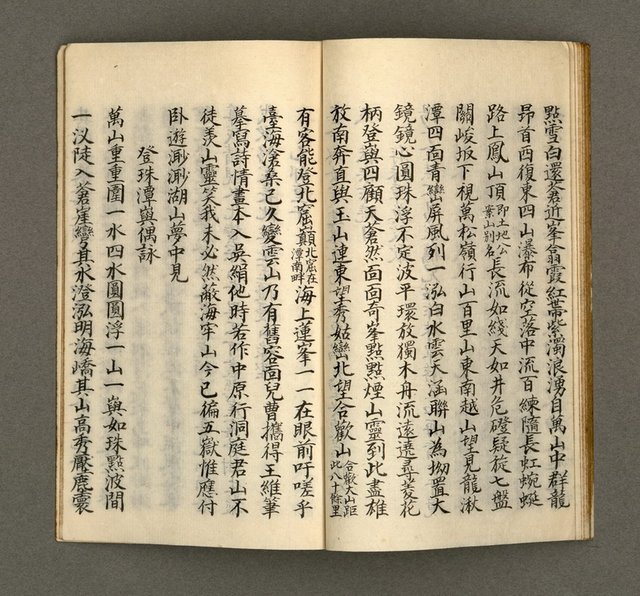 點雪白還蒼近峯翕霞紅帶紫濁浪湧自萬山中群龍
昂首西復東四山瀑布從空落中流百練隨長虹蜿蜒
路上鳳山頂即土地公案山別名長流如綫天如井危磴疑旋七盤
關峻坂下視萬松嶺行山百里山東南越山望見龍湫
潭四面青巒屏風列一泓白水雲天涵聯山為拗置大
鏡鏡心圓珠浮不定波平環放獨木舟流遠遠尋菱花
柄登嶼四顧天蒼然面面奇峯點點煙山靈到此盡雄
放南奔直與玉山連東望秀姑巒北望合歡山合歡大山距此八十餘里
有客能登北窟巔北窟在潭南畔海上蓮峯一一在眼前吁嗟乎
臺海滄桑已久變雲山乃有舊容面兒曹攜得王維筆
摹寫詩情畫本入吳絹他時若作中原行洞庭君山不
徒羨山靈笑我未必然蔽海牢山今已徧五嶽惟應付
卧遊渺渺湖山夢中見
登珠潭嶼偶詠
萬山重重圍一水四水圓圓浮一山一嶼如珠點波間
一汊陡入蒼崖彎其水澄泓明海嶠其山高秀壓塵寰